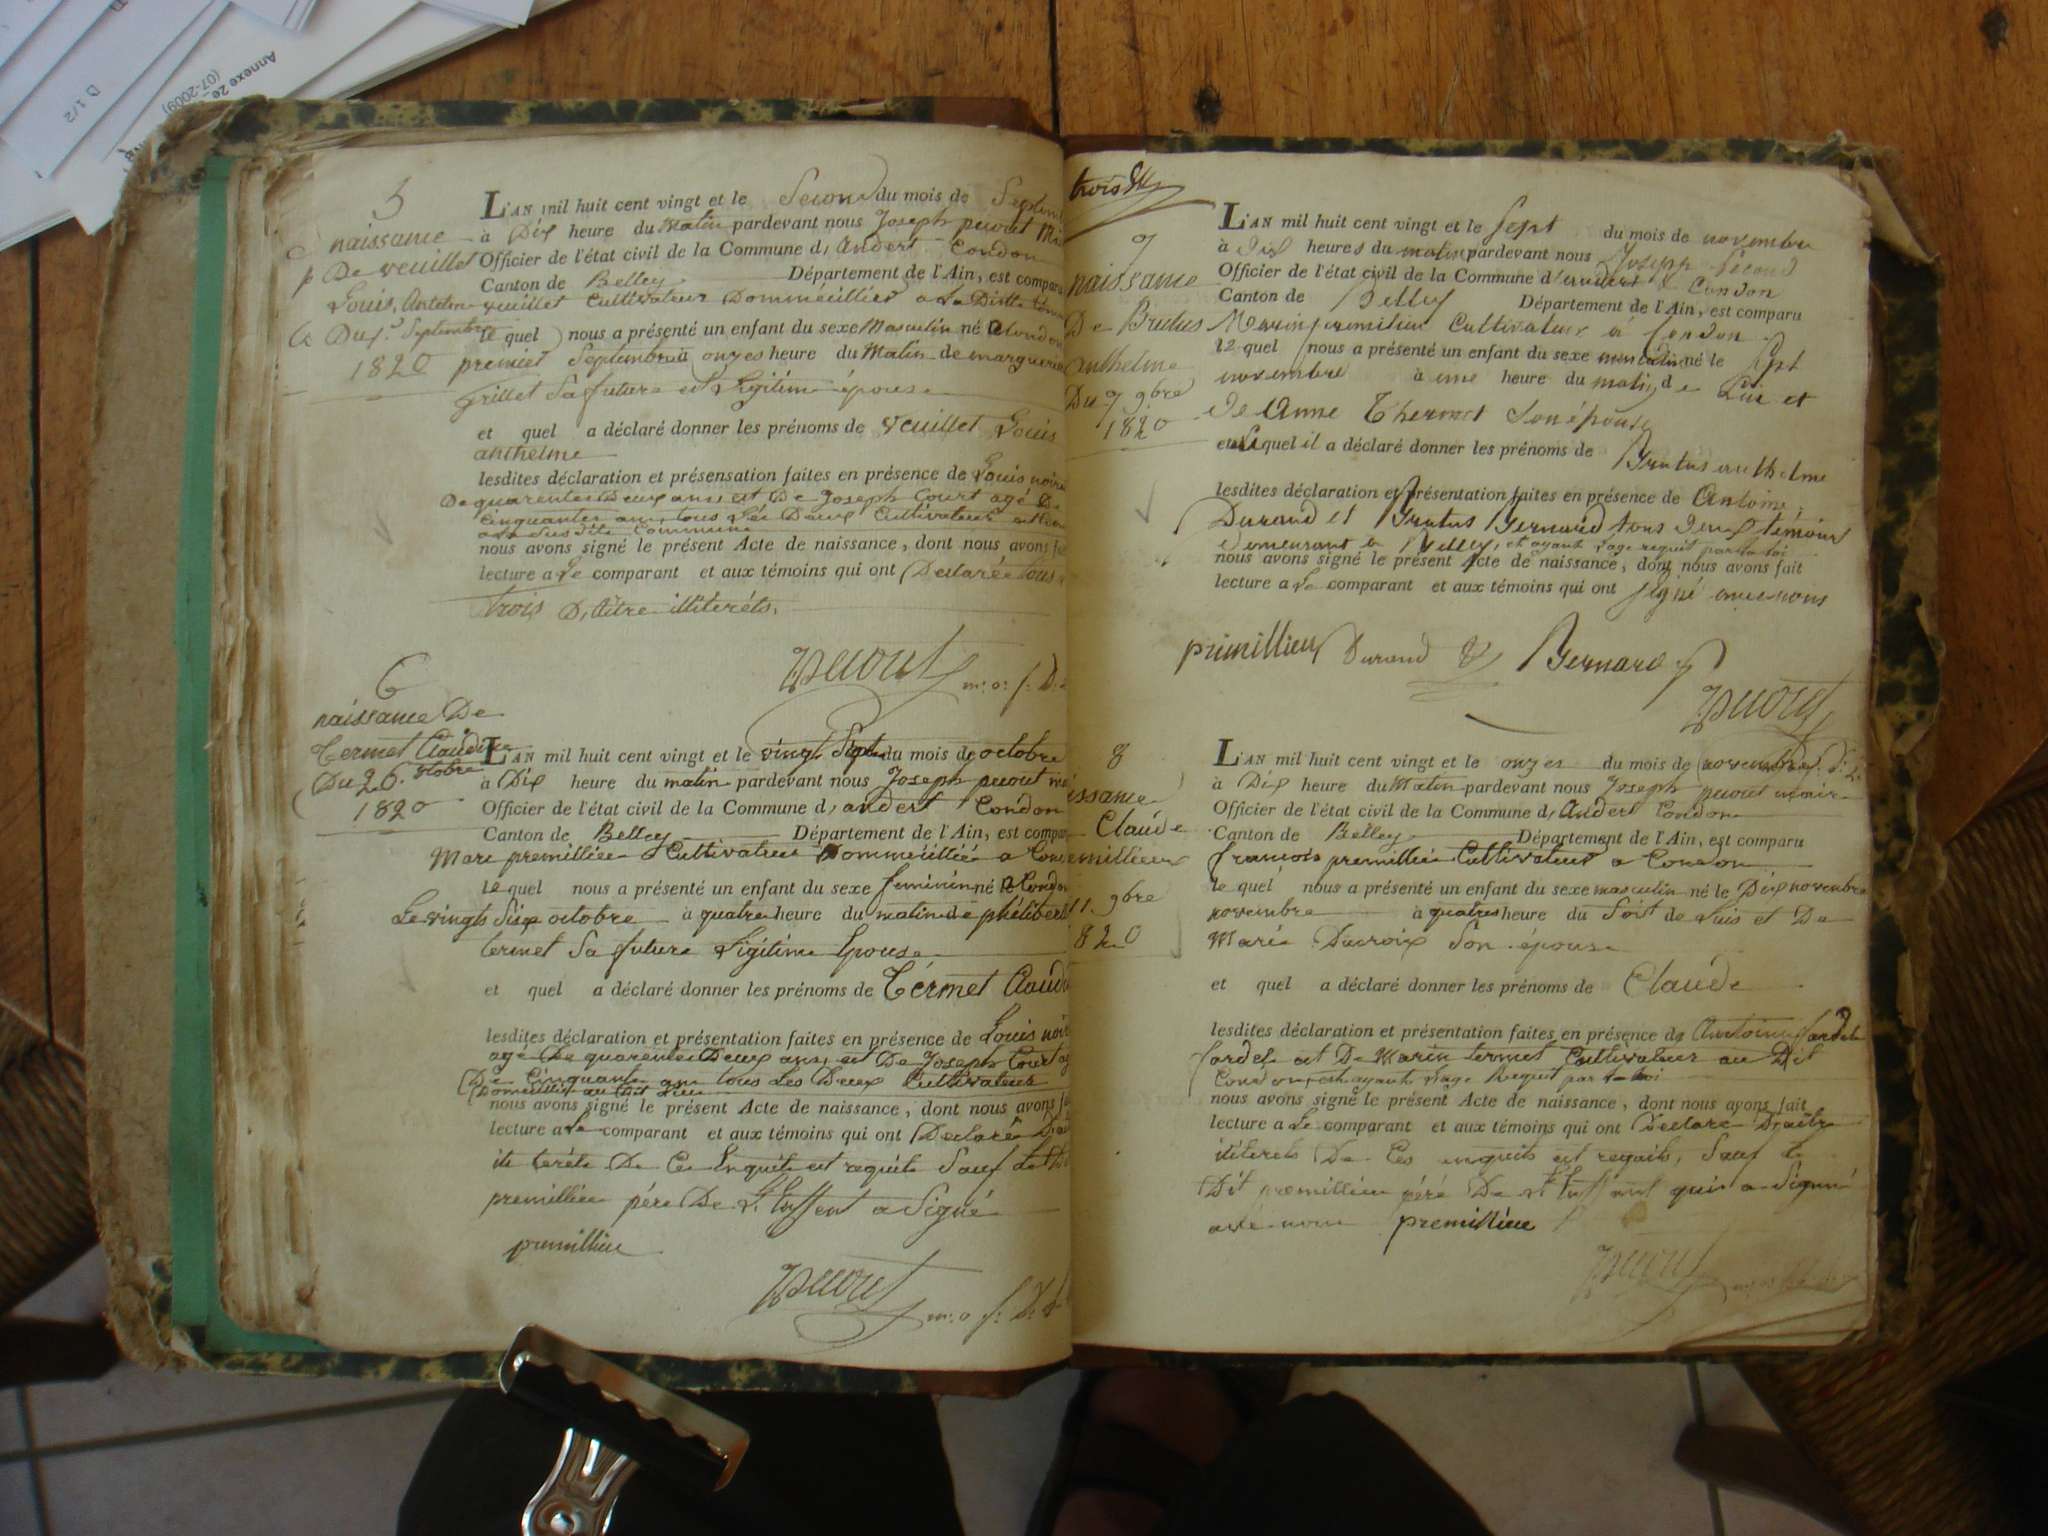 Annexe 2e
(07-2009)
D 1/2
5
naissance
De veuillet
Louis, Antelme
Du 1.er Septembre
1820
L'AN mil huit cent vingt et le Second du mois de Septem
à Dix heure du Matin pardevant nous Joseph
Officier de l'état civil de la Commune d, Andert Condon
Canton de Belley Département de l'Ain, est comparu
veuillet Cultivateur Dommeuillier a La Ditte
le quel nous a présenté un enfant du sexe Masculin né a Condon
premier Septembre a onzes heure du Matin de marguerite
Grillet Sa future et Légitime épouse
et quel a déclaré donner les prénoms de veuillet Louis
anthelme
lesdites déclaration et présensation faites en présence de Louis noire
De quarentes Deux ans et De Joseph Court agé De
Cinquantes an, tous Les Deux Cultivateur
susdite Commune
nous avons signé le présent Acte de naissance, dont nous avons fai
lecture a Le comparant et aux témoins qui ont Declarée tous
trois D, être illiteréts.
m: o: f: D:
6
naissance De
Termet Claudine
Du 26. octobre
1820
L'AN mil huit cent vingt et le vingt Sept du mois de octobre
à Dix heure du matin pardevant nous Joseph
Officier de l'état civil de la Commune d, andert Condon
Canton de Belley Département de l'Ain, est compar
Marc premillieu Cultivateur Dommeuillié a Con
le quel nous a présenté un enfant du sexe feminin né a Condon
Le vingts Six octobre à quatre heure du matin de phélibert
termet Sa future Légitime Epouse
et quel a déclaré donner les prénoms de Térmet Claud
lesdites déclaration et présentation faites en présence de Louis noir
agé De quarentes Deux ans, et De Joseph Court ag
De Cinquante an tous Les Deux Cultivateur
Domeuillié au Dit Lieu
nous avons signé le présent Acte de naissance, dont nous avons fa
lecture a Le comparant et aux témoins qui ont Declaré
De Ce Enquits et requits Sauf Le
premillieu père De L'Enffent a Signé
premillieu
m: o f: D:
trois
7
naissance
De Brutus
Anthelme
Du 7 9bre
1820
L'AN mil huit cent vingt et le Sept du mois de novembre
à Dix heures du matin pardevant nous Joseph Second
Officier de l'état civil de la Commune d'andert & Condon
Canton de Belley Département de l'Ain, est comparu
Marin premilieu Cultivateur à Condon
le quel nous a présenté un enfant du sexe masculin né le Sept
novembre à une heure du matin, de Lui et
de Anne Thermet Son épouse
et quel il a déclaré donner les prénoms de Brutus anthelme
lesdites déclaration et présentation faites en présence de Antoine
Durand et Brutus Bernard tous deux témoins
demeurant à Belley, et ayant l'age requit par la loi
nous avons signé le présent Acte de naissance, dont nous avons fait
lecture a Le comparant et aux témoins qui ont signé avec nous
primillieu Durand Bernard
8
issance
Claude
emillieux
11. 9bre
820
L'AN mil huit cent vingt et le onzes du mois de novembre
à Dix heure du Matin pardevant nous Joseph maire
Officier de l'état civil de la Commune d, Andert Condon
Canton de Belley Département de l'Ain, est comparu
francois premillieu Cultivateur a Condon
le quel nous a présenté un enfant du sexe masculin né le Dix novembre
novembre à quatres heure du Soit de Luis et De
Marie Ducroix Son épouse
et quel a déclaré donner les prénoms de Claude
lesdites déclaration et présentation faites en présence de Antoine
et De Marin termet Cultivateur au Dit
Condon, et ayant l'age Requit par la loi
nous avons signé le présent Acte de naissance, dont nous avons fait
lecture a Le comparant et aux témoins qui ont Déclaré D'aître
iliterets De Ces enquits et requits, Sauf le
Dit premillieu péré De L'Enffant qui a Signé
avec nous premillieu